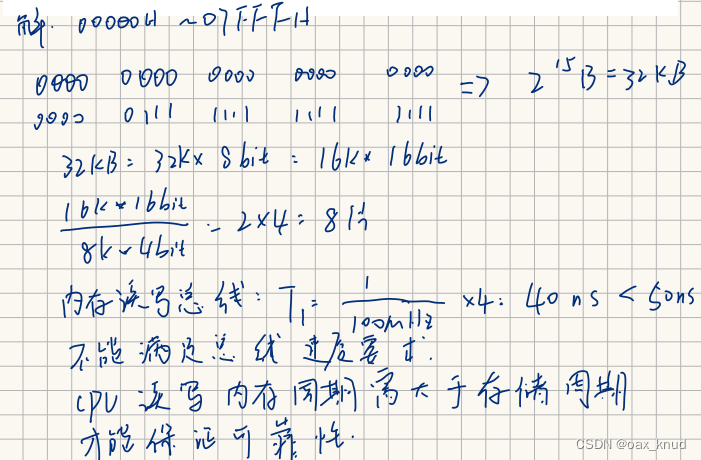 解. 00000H ~07FFFH
0000 0000 0000 0000 0000
0000 0111 1111 1111 1111
=> 2^15 B = 32KB
32KB = 32K× 8bit = 16K× 16bit
16K×16bit / 8K×4bit = 2×4 = 8片
内存读写总线: T1 = 1/100MHz ×4 = 40ns < 50ns
不能满足总线速度要求.
CPU 读写内存周期需大于存储周期
才能保证可靠性.
CSDN @oax_knud